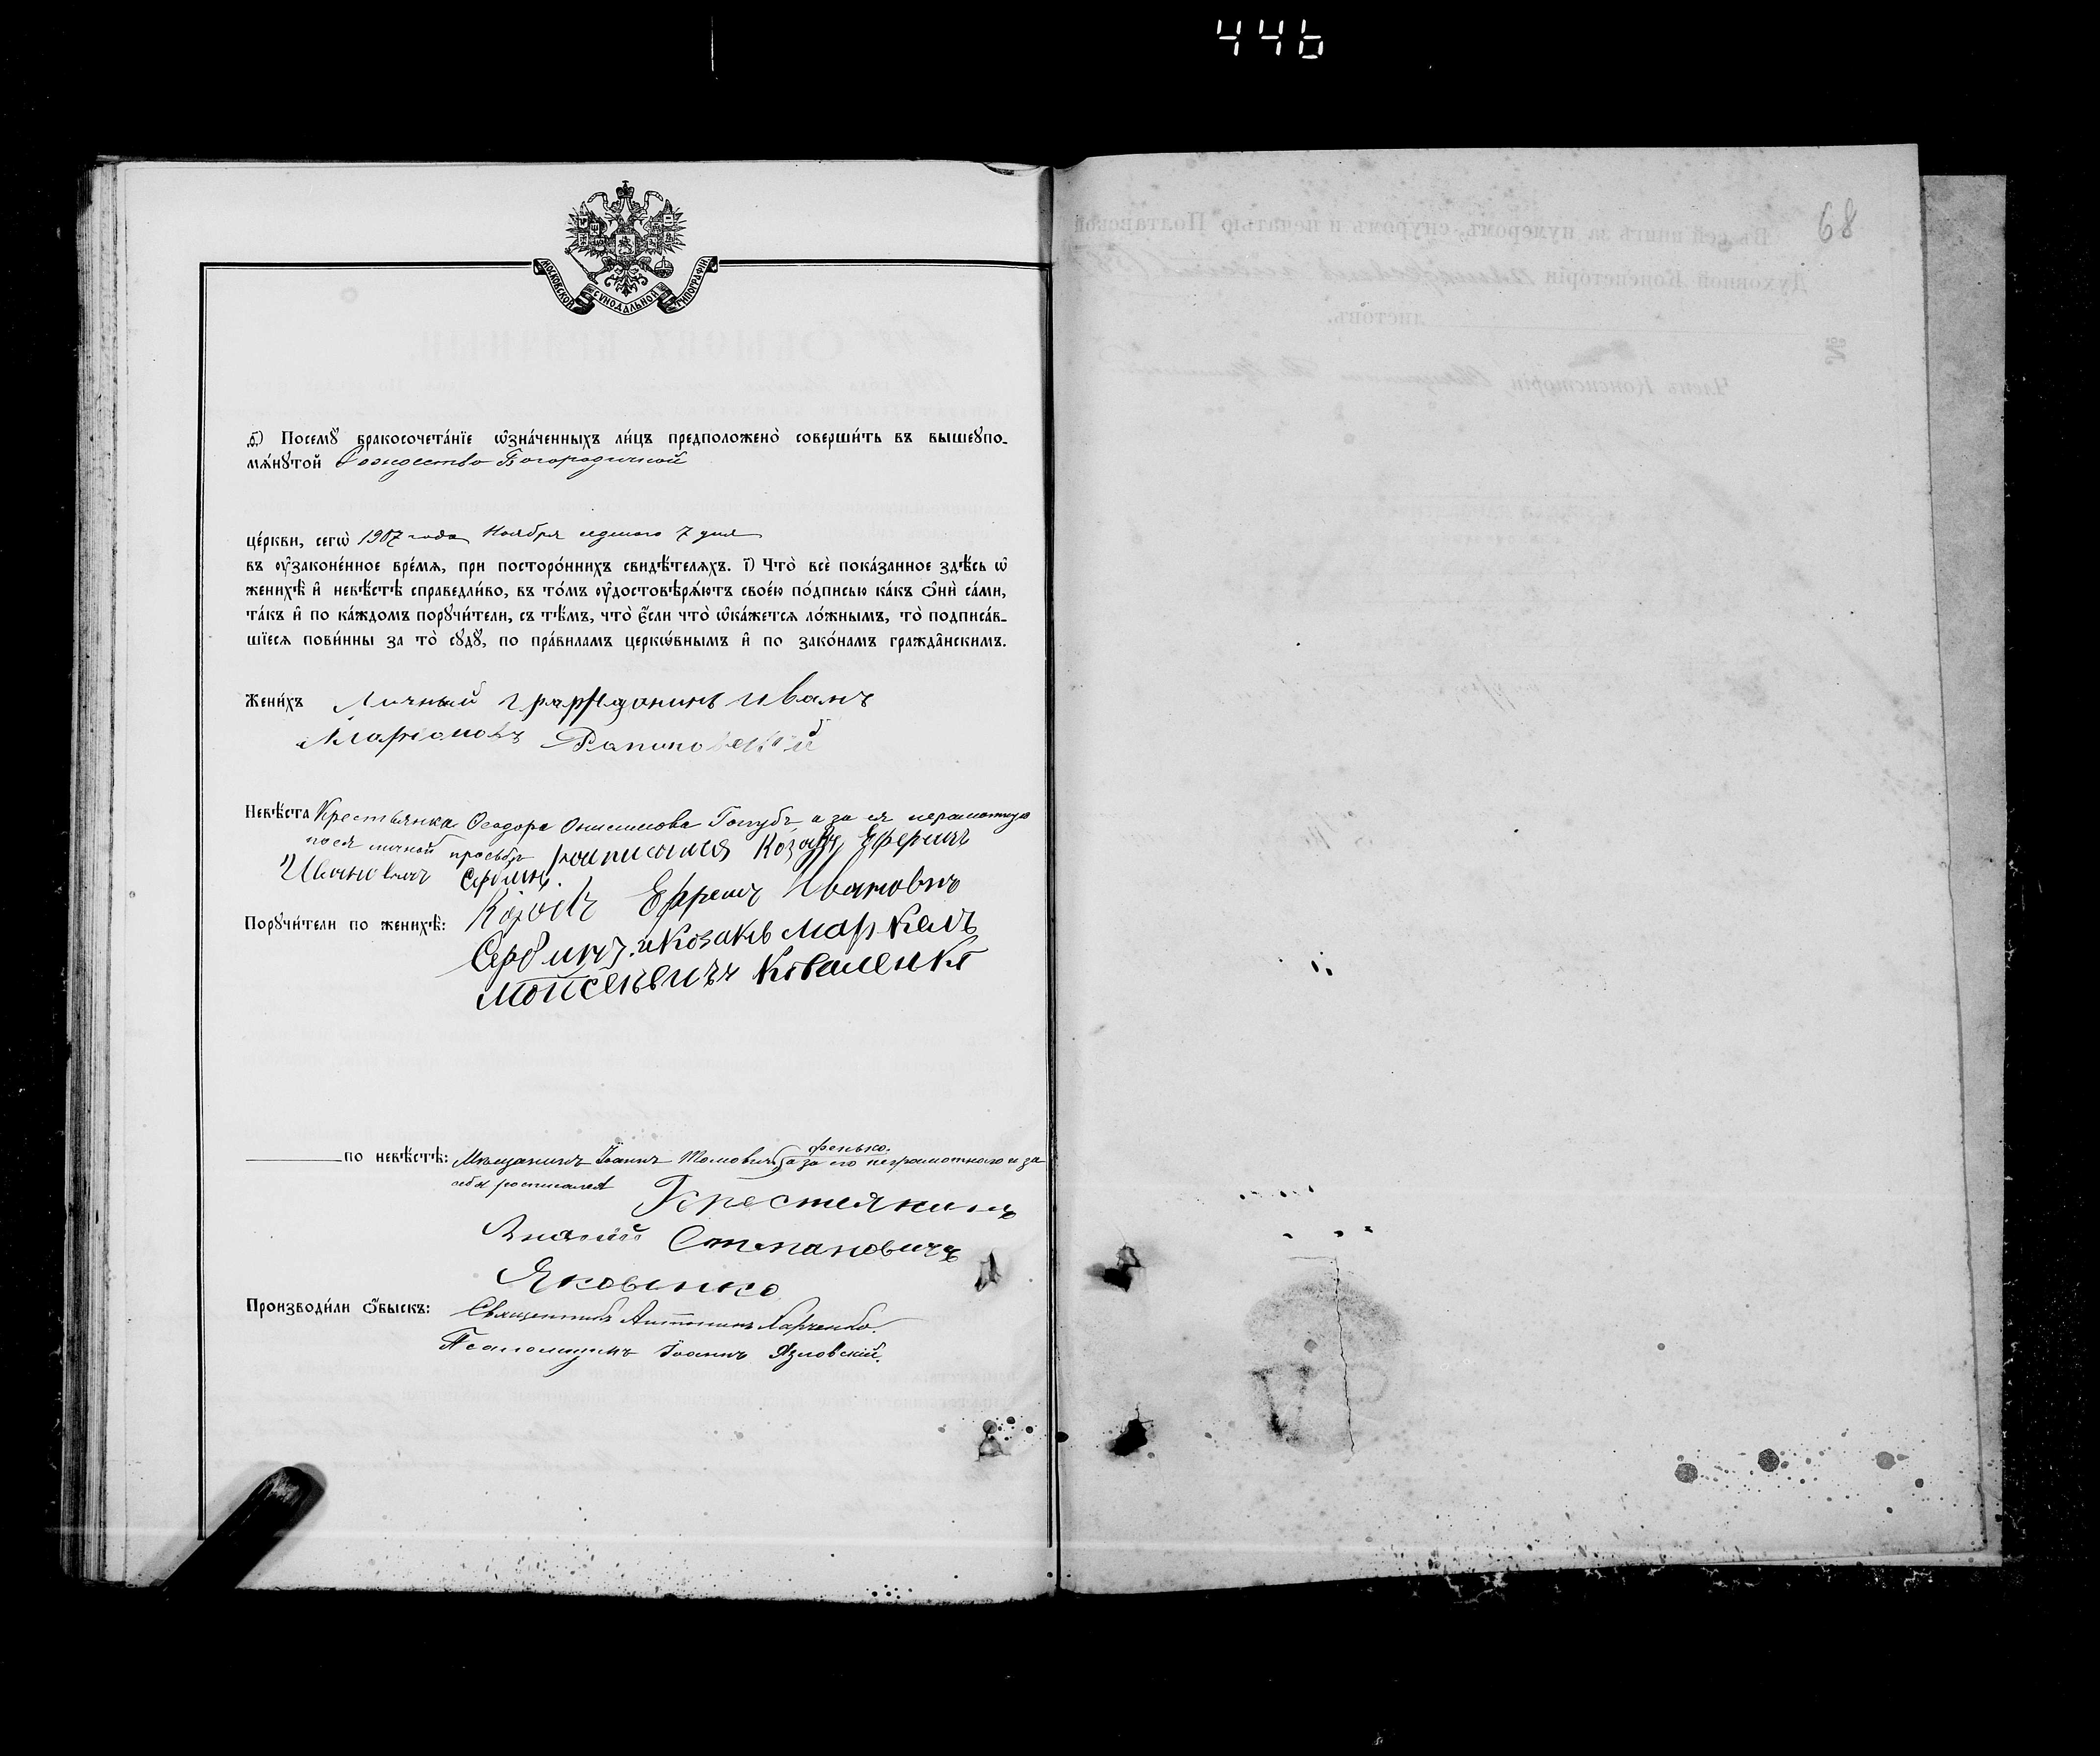 446
МОСКОВСКОЙ СѴНОДАЛЬНОЙ ТИПОГРАФІИ
68
Посемꙋ̀ бракосочета́нїе ѡ҆зна́ченныхъ ли́цъ предположено̀ соверши́ть въ вышеꙋпо-
мѧ́нꙋтой Рождество Богородичной
це́ркви, сегѡ̀ 1907 года Ноября седмого 7 дня
въ ᲂу҆законе́нное вре́мѧ, при посторо́ннихъ свидѣ́телѧхъ. і҃) Что̀ всѐ пока́занное здѣ́сь ѡ҆
женихѣ̀ и҆ невѣ́стѣ справедли́во, въ то́мъ ᲂу҆достовѣрѧ́ютъ свое́ю по́дписью ка́къ ѻ҆нѝ са́ми,
та́къ и҆ по ка́ждомъ порꙋчи́тели, съ тѣ́мъ, что̀ є҆́сли что̀ ѡ҆ка́жетсѧ ло́жнымъ, то̀ подписа́в-
шїесѧ пови́нны за то̀ сꙋдꙋ̀, по пра́виламъ церкѡ́внымъ и҆ по зако́намъ гражда̂нскимъ.
Жени́хъ Личный гражданинъ Иванъ
Невѣ́ста Крестьянка Ѳеодора Онисимова Голубъ, а за ея неграмотную
по ея личной просьбѣ росписался Козакъ Ефремъ
Ивановичъ Сербинъ.
Порꙋчи́тели по женихѣ̀: Козакъ Ефремъ Ивановичъ
Сербинъ. и Козакъ Маркелъ
Моисеевичъ Коваленко
по невѣ́стѣ: Мѣщанинъ Іоаннъ Фенько. а за его неграмотного и за
себя росписался Крестиянинъ
Степановичъ
Яковенко
Производи́ли ѻ҆́быскъ: Священникъ Антонинъ Харченко.
Псаломщикъ Іоаннъ Язловскій.